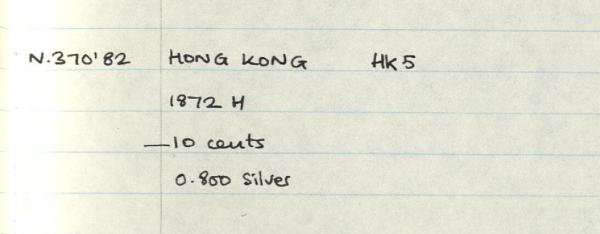 N.370'82 HONG KONG HK5
1872 H
—10 cents
0.800 Silver